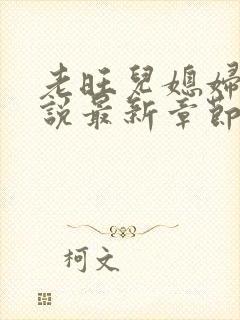 老旺兒媳婦
說最新章節
柯文